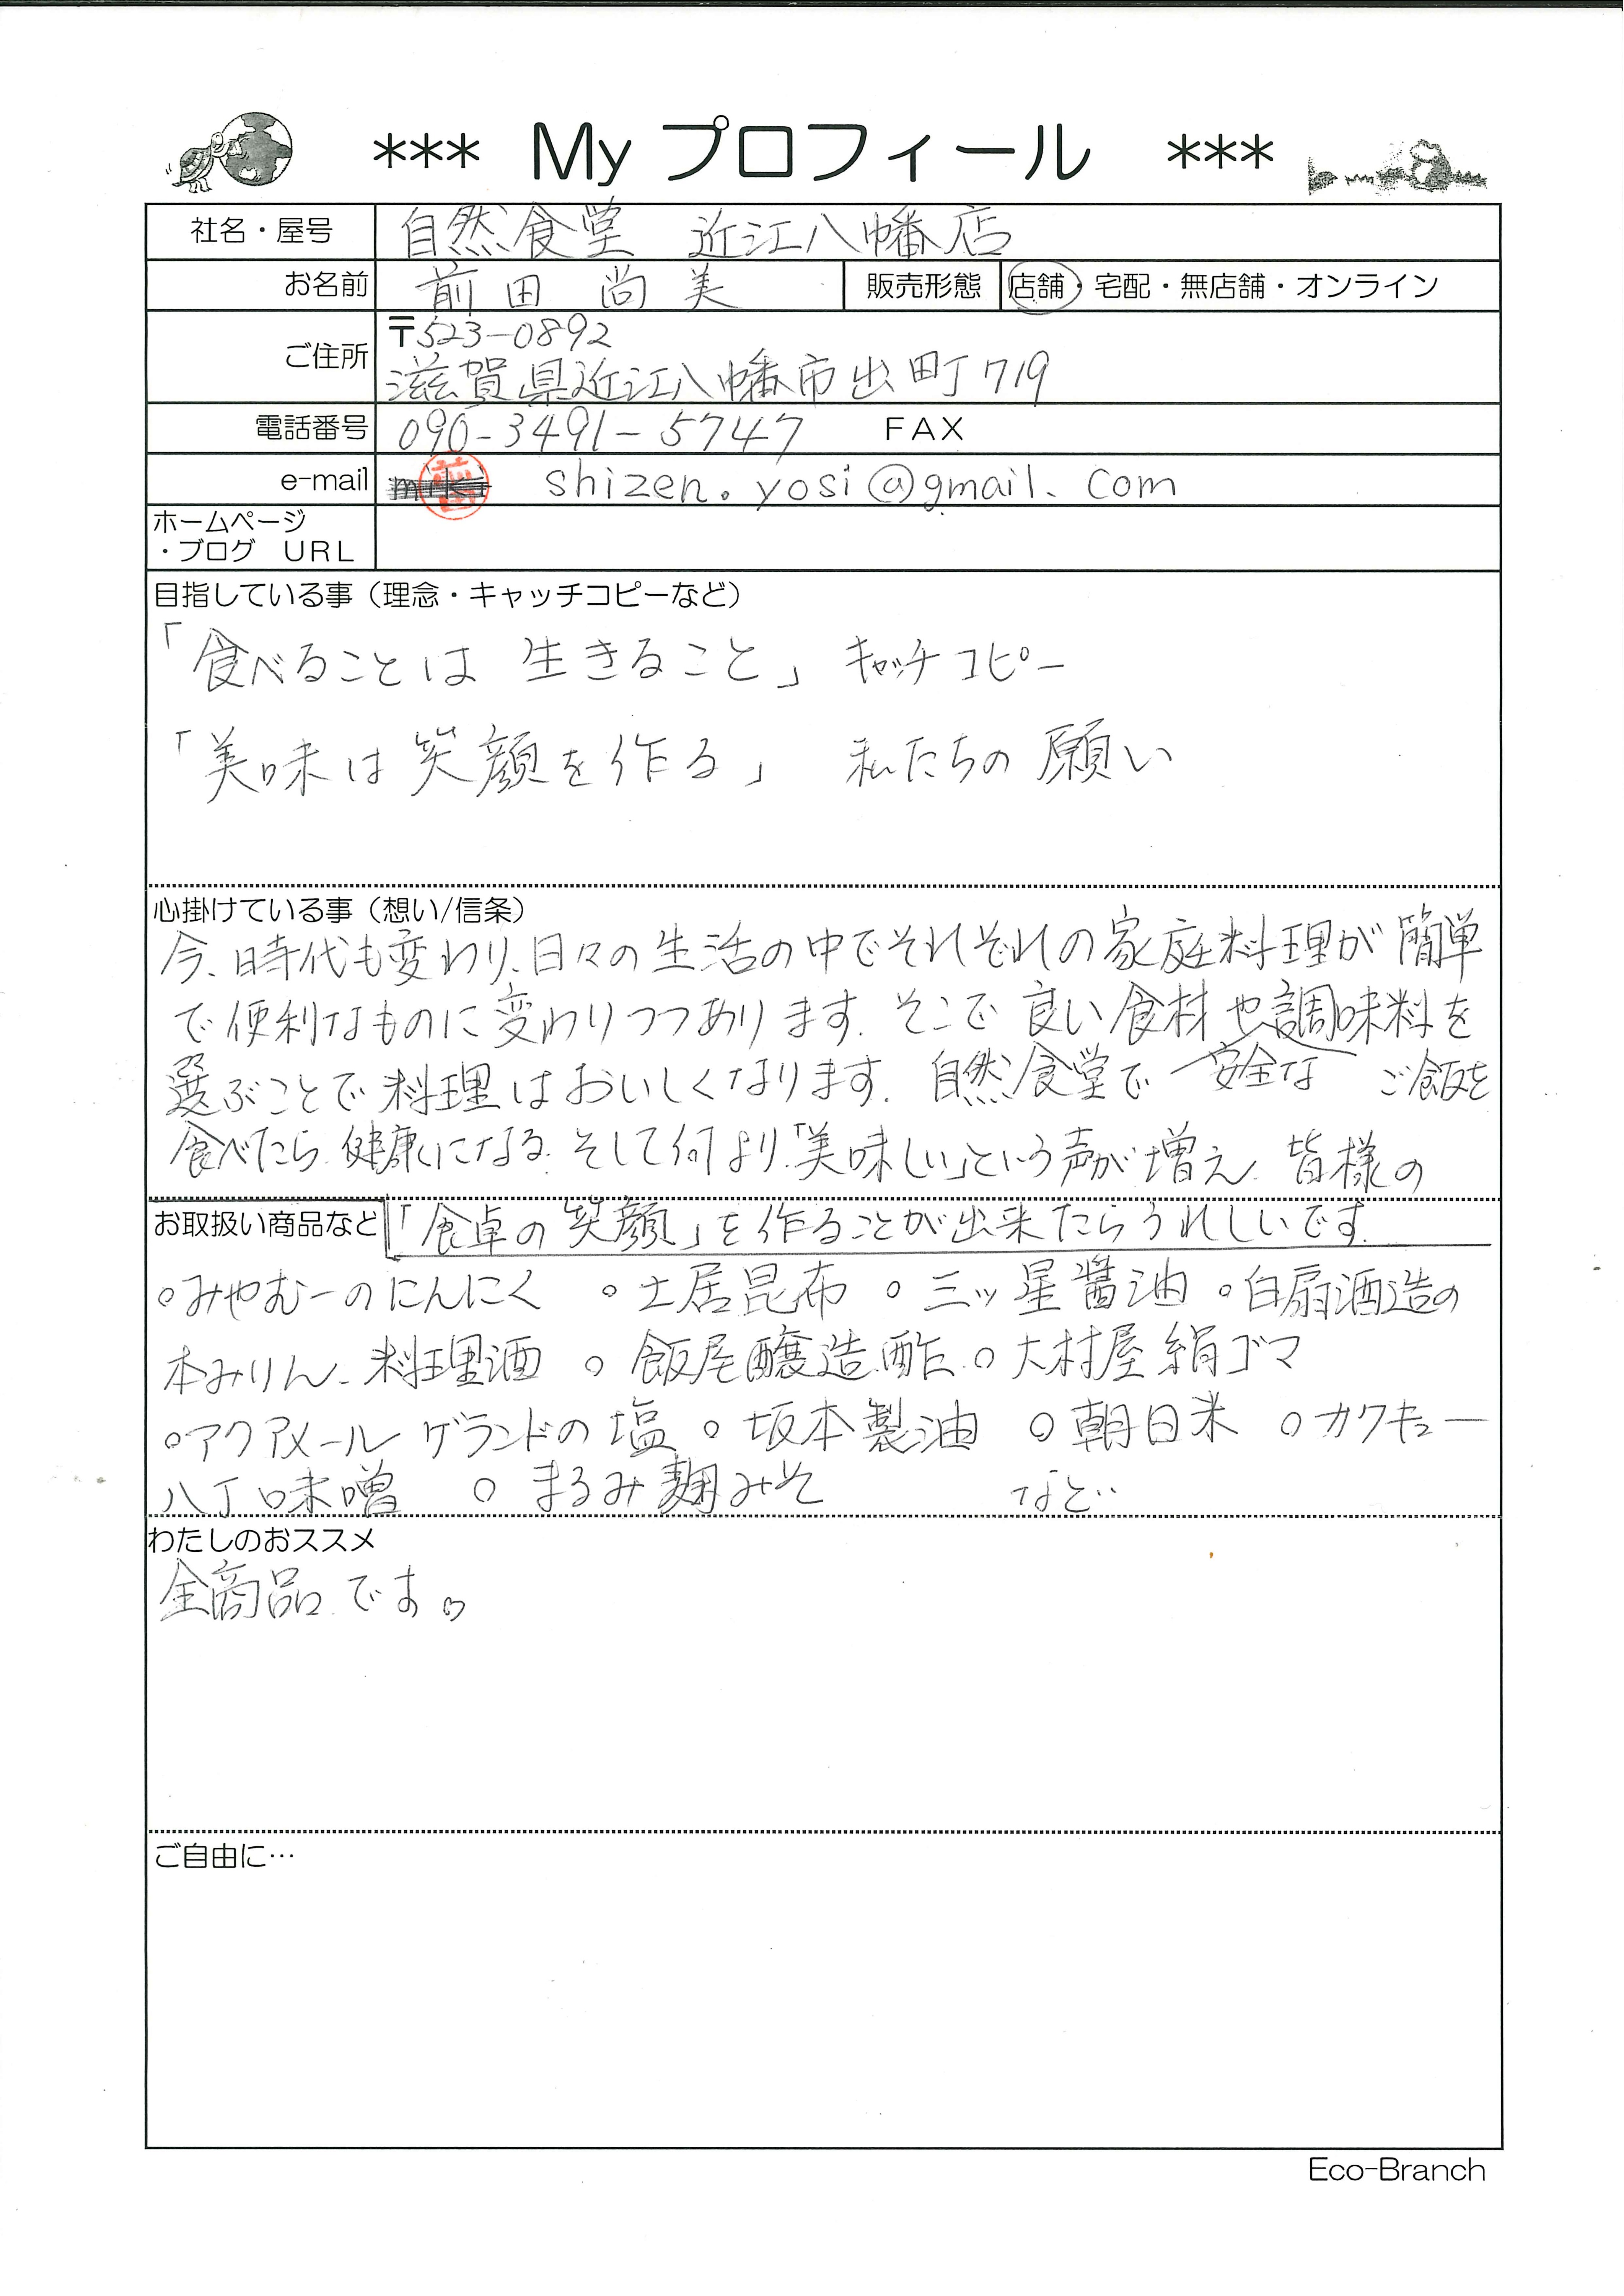 *** My プロフィール ***
社名・屋号 自然食堂 近江八幡店
お名前 前田 尚美 販売形態 店舗・宅配・無店舗・オンライン
ご住所 〒523-0892
滋賀県近江八幡市出町719
電話番号 090-3491-5747 FAX
e-mail shizen.yosi@gmail.com
ホームページ
・ブログ URL
目指している事（理念・キャッチコピーなど）
「食べることは 生きること」 キャッチコピー
「美味は 笑顔を作る」 私たちの願い
心掛けている事（想い/信条）
今、時代も変わり、日々の生活の中でそれぞれの家庭料理が簡単
で便利なものに変わりつつあります。そこで良い食材や調味料を
選ぶことで料理はおいしくなります。自然食堂で安全なご飯を
食べたら、健康になる。そして何より、「美味しい」という声が増え、皆様の
お取扱い商品など 「食卓の笑顔」を作ることが出来たらうれしいです。
○みやむーのにんにく ○土居昆布 ○三ッ星醤油 ○白扇酒造の
本みりん、料理酒 ○飯尾醸造酢 ○大村屋絹ゴマ
○アクアメール ゲランドの塩 ○坂本製油 ○朝日米 ○カクキュー
八丁味噌 ○まるみ麹みそ など‥
わたしのおススメ
全商品です。
ご自由に…
Eco-Branch